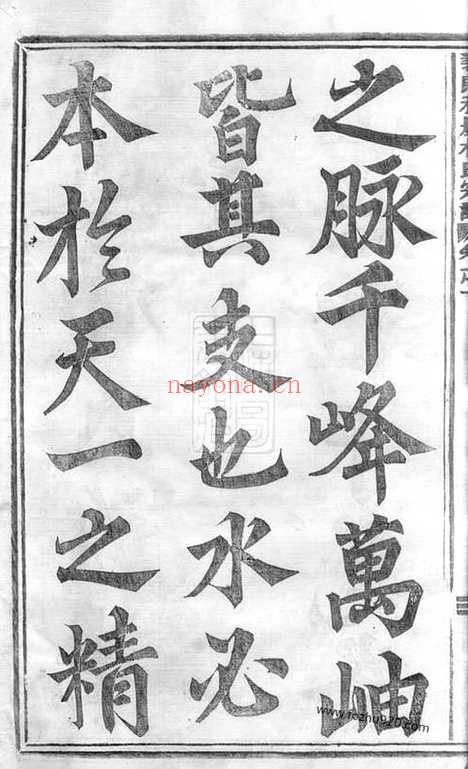 之脉千峰萬岫
皆其支也水必
本於天一之精
nayona.cn
www.rczhu920.com